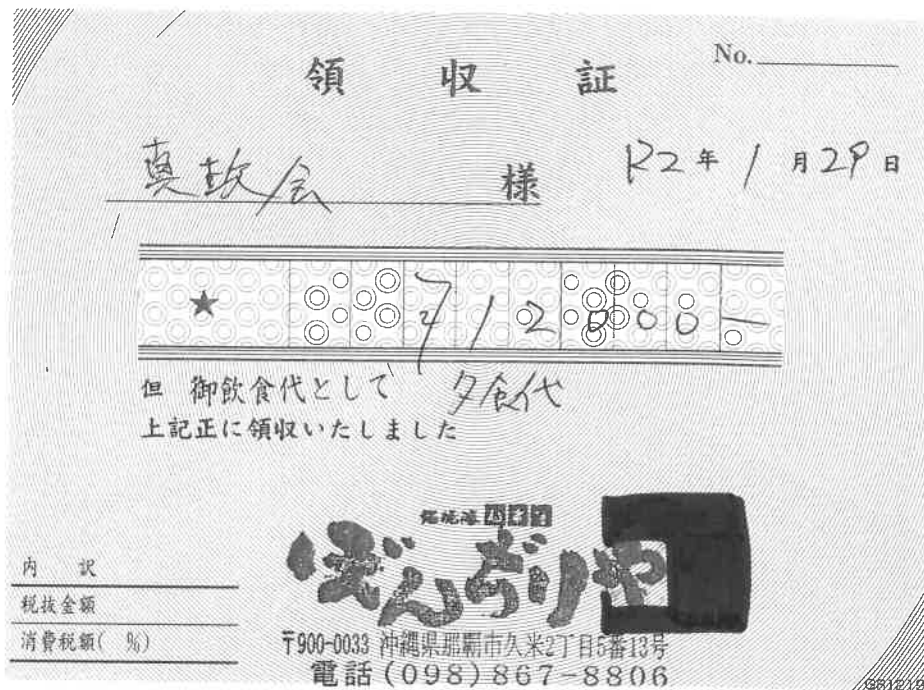 No.
領収証
真政会 様
R2年1月29日
★ ¥12000-
但 御飲食代として 夕食代
上記正に領収いたしました
ぼんぢりや
内訳
税抜金額
消費税額( %)
〒900-0033 沖縄県那覇市久米2丁目5番13号
電話(098)867-8806